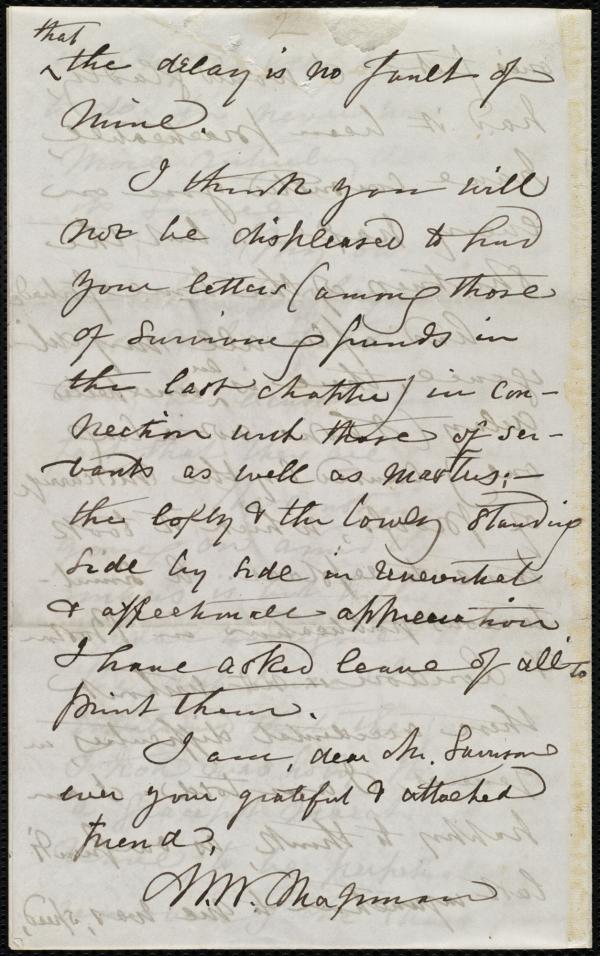 that
^ the delay is no fault of
mine.
I think you will
not be displeased to find
your letters (among those
of surviving friends in
the last chapter) in con-
nection with those of ser-
vants as well as masters; –
the lofty & the lowly standing
side by side in reverential
& affectionate appreciation
I have asked leave of all to
print them.
I am, dear Mr. Garrison
ever your grateful & attached
friend,
M. W. Chapman